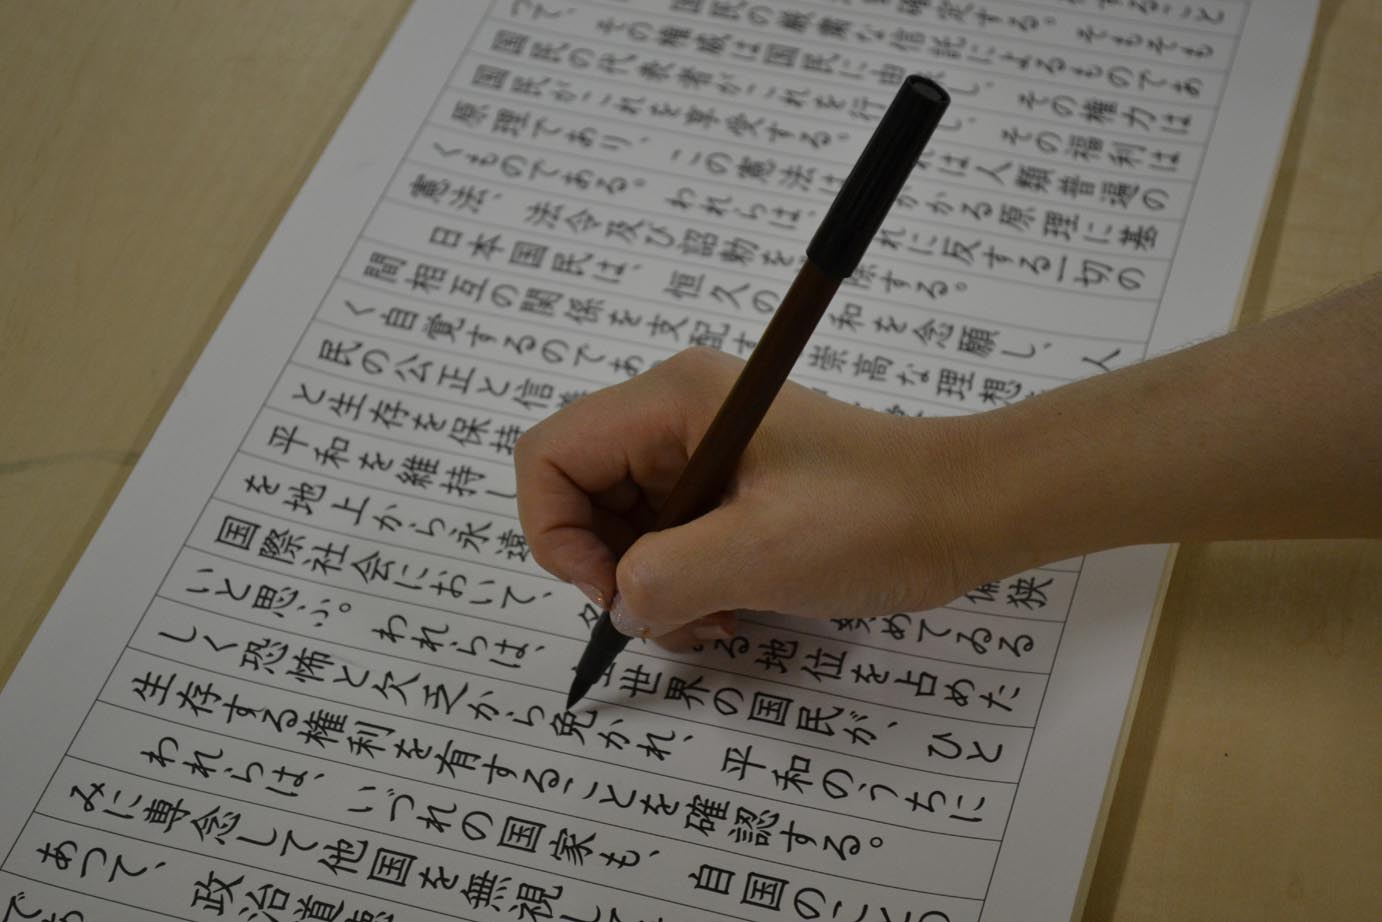 することと
確定する。そもそも
つて、国民の厳粛な信託によるものであ
その権威は国民に由し、その権力は
国民の代表者がこれを行し、その福利は
国民がこれを享受する。れは人類普遍の
原理であり、この憲法はかかる原理に基
くものである。われらは、れに反する一切の
憲法、法令及び詔勅を除する。
日本国民は、恒久の和を念願し、人
間相互の関係を支配す崇高な理想
く自覚するのであ
民の公正と信
と生存を保持
平和を維持し
を地上から永遠狭
国際社会において、めてゐる
る地位を占めた
いと思ふ。われらは、世界の国民が、ひと
しく恐怖と欠乏から免かれ、平和のうちに
生存する権利を有することを確認する。
われらは、いづれの国家も、自国のことの
みに専念して他国を無視して
あつて、政治道徳
であ